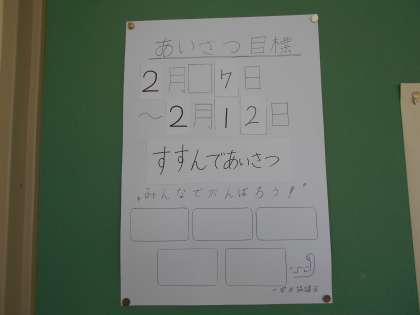 あいさつ目標
2月 7日
〜2月12日
すすんであいさつ
みんなでがんばろう!